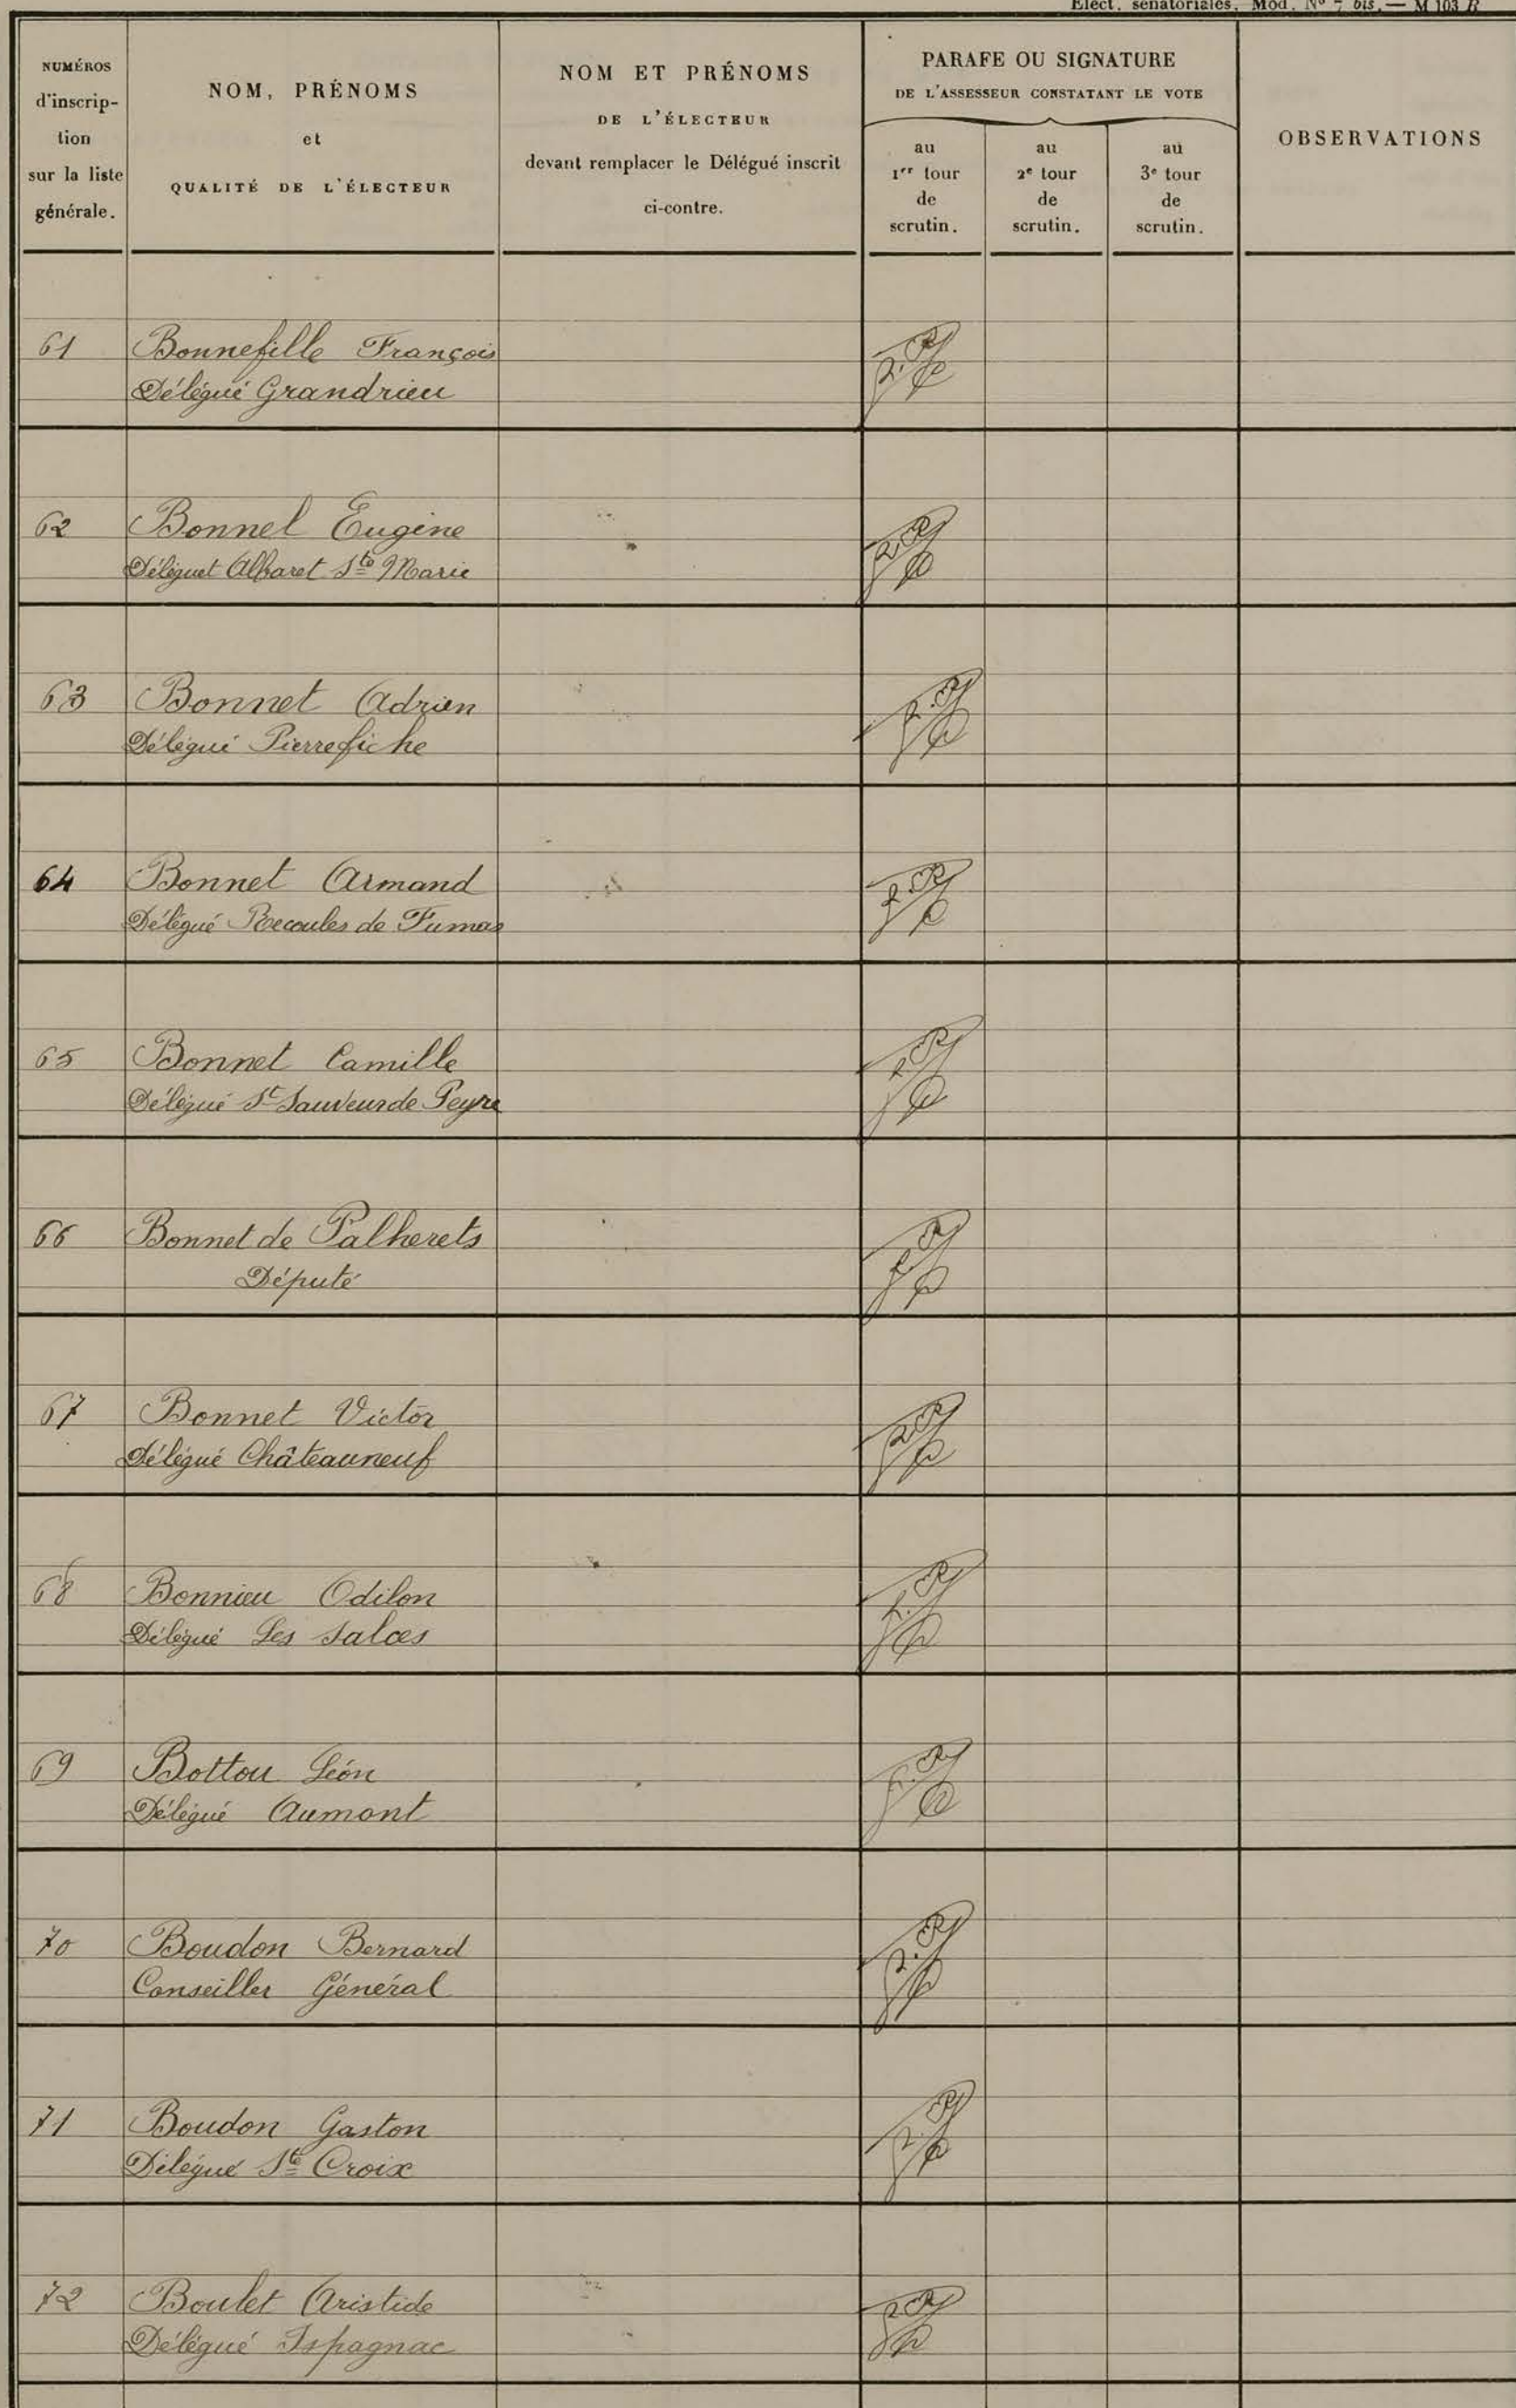 Élect. sénatoriales. Mod. N° 7 bis. — M 103 R
NUMÉROS
d'inscrip-
tion
sur la liste
générale.
NOM, PRÉNOMS
et
QUALITÉ DE L'ÉLECTEUR
NOM ET PRÉNOMS
DE L'ÉLECTEUR
devant remplacer le Délégué inscrit
ci-contre.
PARAFE OU SIGNATURE
DE L'ASSESSEUR CONSTATANT LE VOTE
au
1er tour
de
scrutin.
au
2e tour
de
scrutin.
au
3e tour
de
scrutin.
OBSERVATIONS
61 Bonnefille François
Délégué Grandrieu
62 Bonnel Eugène
Déléguet Albaret Ste Marie
63 Bonnet Adrien
Délégué Pierrefiche
64 Bonnet Armand
Délégué Recoules de Fumas
65 Bonnet Camille
Délégué St Sauveur de Peyre
66 Bonnet de Palherets
Député
67 Bonnet Victor
Délégué Châteauneuf
68 Bonnieu Odilon
Délégué Les Salces
69 Bottou Léon
Délégué Aumont
70 Boudon Bernard
Conseiller Général
71 Boudon Gaston
Délégué Ste Croix
72 Boulet Aristide
Délégué Ispagnac